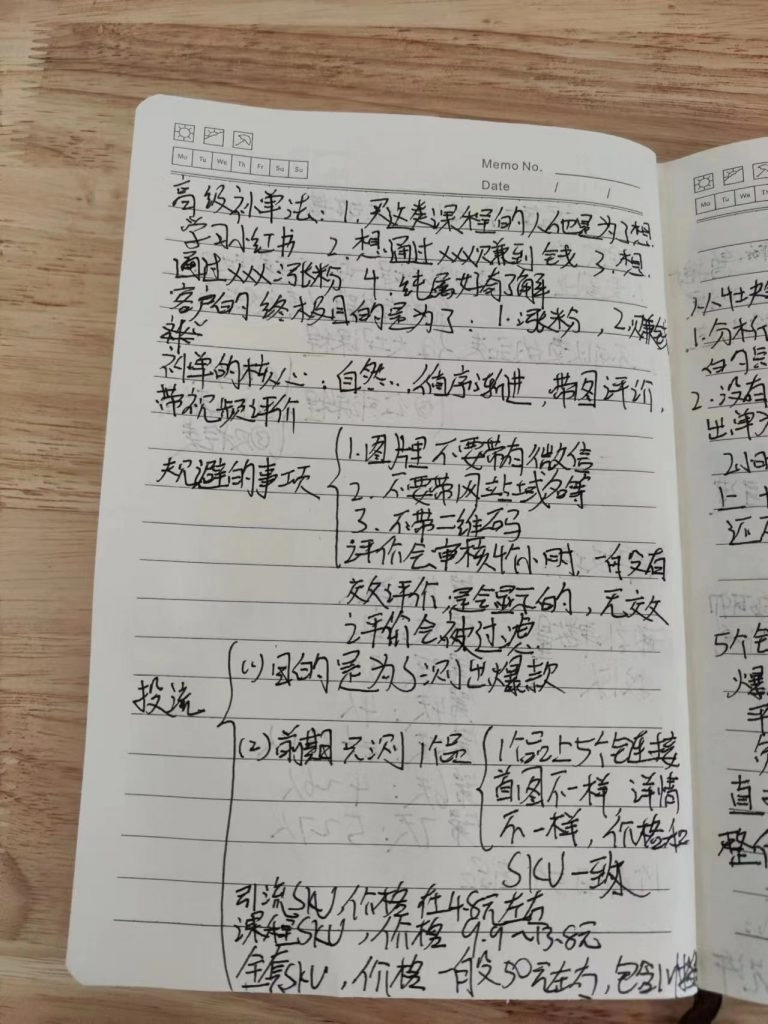 Mo Tu We Th Fr Sa Su
Memo No.
Date / /
高级补单法：1. 买这类课程的人他是为了想
学习小红书 2. 想通过xxx赚到钱 3. 想
通过xxx涨粉 4. 纯属好奇了解
客户的终极目的是为了：1. 涨粉，2. 赚钱
补单的核心：自然..，循序渐进，带图评价，
带视频评价
规避的事项
1. 图片里不要带有微信
2. 不要带网站域名等
3. 不带二维码
评价会审核4个小时，一般有
效评价是会显示的，无效
评价会被过滤
投流
(1) 目的是为了测出爆款
(2) 前期只测1个品
1个品上5个链接
首图不一样 详情
不一样，价格和
SKU一致
引流SKU，价格在4.8元左右
课程SKU，价格9.9～13.8元
全套SKU，价格一般50元左右，包含
Mo Tu We Th
1. 分析
2. 没有
出单
2小时
还
5个
爆
平
直
整个